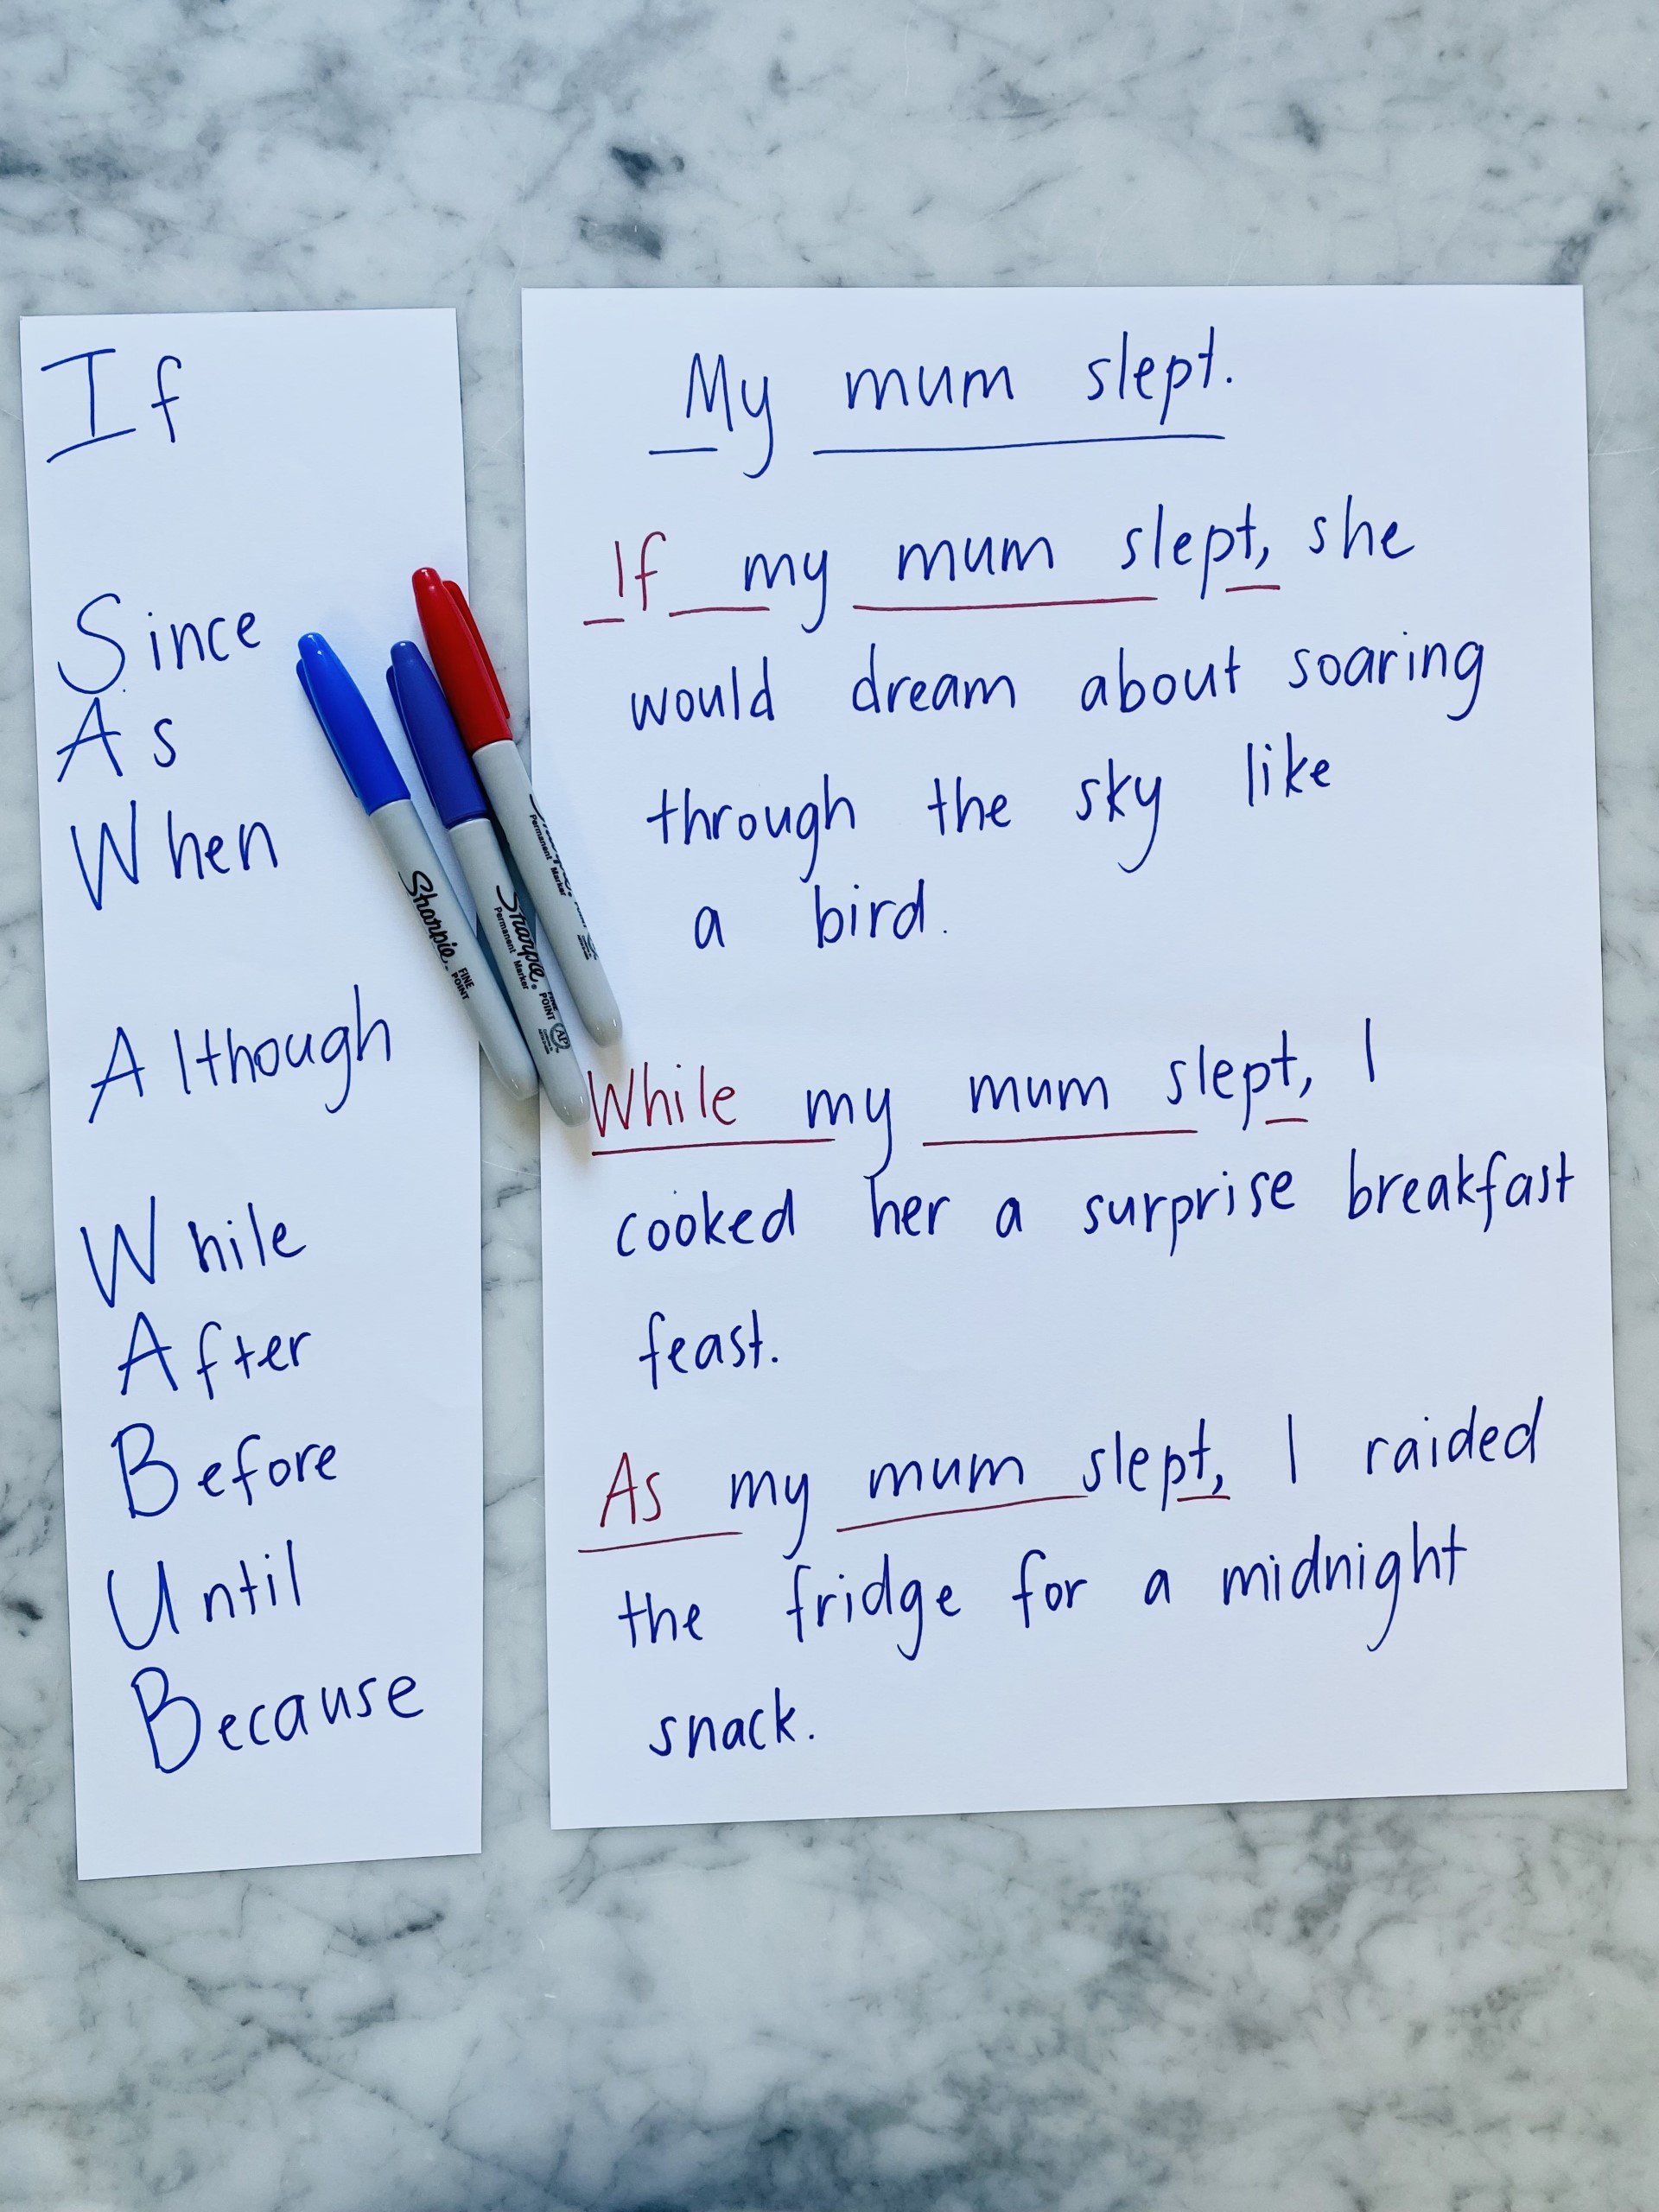 If
Since
As
When
Although
While
After
Before
Until
Because
My mum slept.
If my mum slept, she
would dream about soaring
through the sky like
a bird.
While my mum slept, I
cooked her a surprise breakfast
feast.
As my mum slept, I raided
the fridge for a midnight
snack.
Sharpie
FINE
POINT
Sharpie
Permanent Marker
FINE
POINT
AP
Permanent Marker